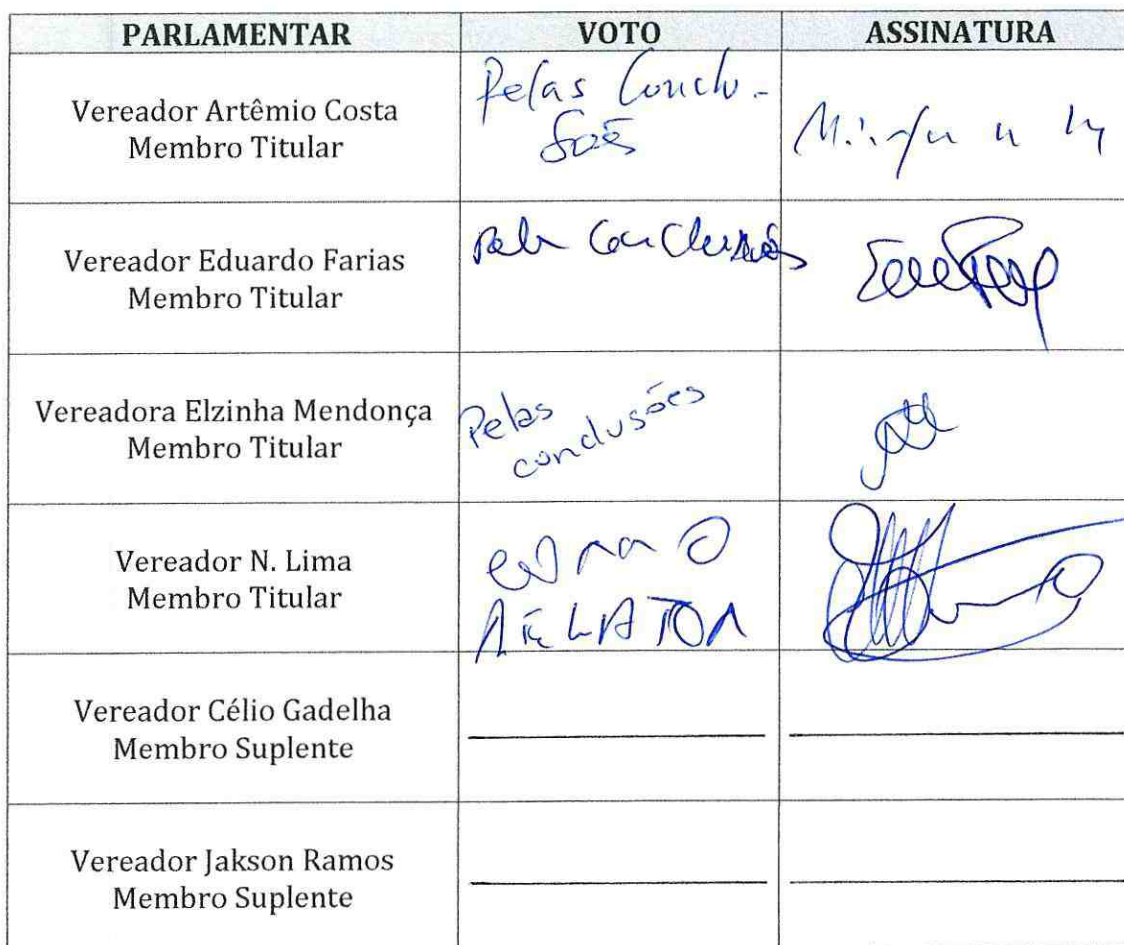 PARLAMENTAR VOTO ASSINATURA
Vereador Artêmio Costa
Membro Titular
Pelas Conclu-
sões
Vereador Eduardo Farias
Membro Titular
Pelas Conclusões
Vereadora Elzinha Mendonça
Membro Titular
Pelas
conclusões
Vereador N. Lima
Membro Titular
com o
RELATOR
Vereador Célio Gadelha
Membro Suplente
Vereador Jakson Ramos
Membro Suplente